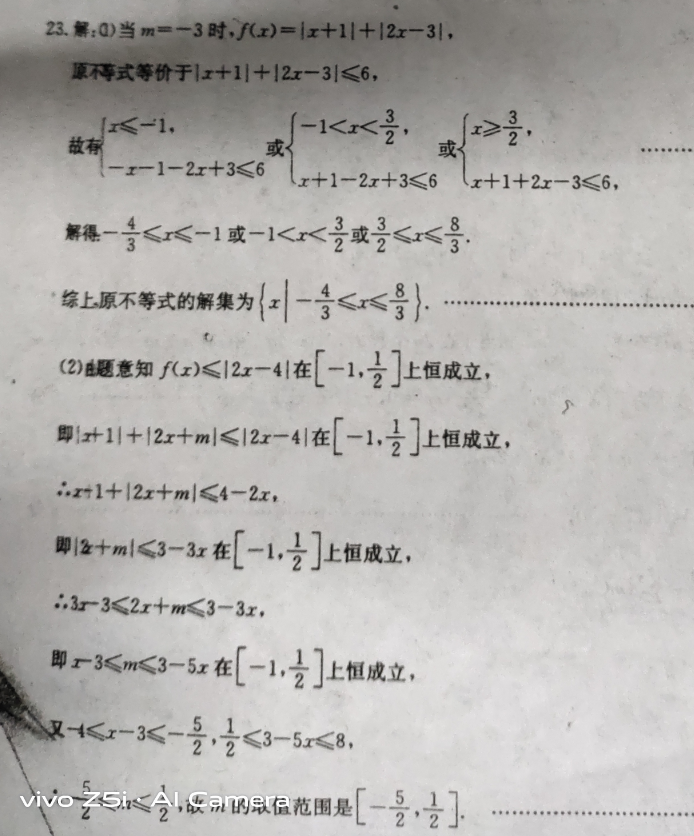 23.解:(1)当m=-3时,f(x)=|x+1|+|2x-3|,
原不等式等价于|x+1|+|2x-3|≤6,
故有{x≤-1, -x-1-2x+3≤6 或{-1<x<3/2, x+1-2x+3≤6 或{x≥3/2, x+1+2x-3≤6, ………
解得-4/3≤x≤-1或-1<x<3/2或3/2≤x≤8/3.
综上,原不等式的解集为{x|-4/3≤x≤8/3}. ………………………………
(2)由题意知f(x)≤|2x-4|在[-1,1/2]上恒成立,
即|x+1|+|2x+m|≤|2x-4|在[-1,1/2]上恒成立,
∴x+1+|2x+m|≤4-2x,
即|2x+m|≤3-3x在[-1,1/2]上恒成立,
∴3x-3≤2x+m≤3-3x,
即x-3≤m≤3-5x在[-1,1/2]上恒成立,
又-4≤x-3≤-5/2,1/2≤3-5x≤8,
∴-5/2≤m≤1/2,故m的取值范围是[-5/2,1/2]. ………………………
vivo Z5i · AI Camera